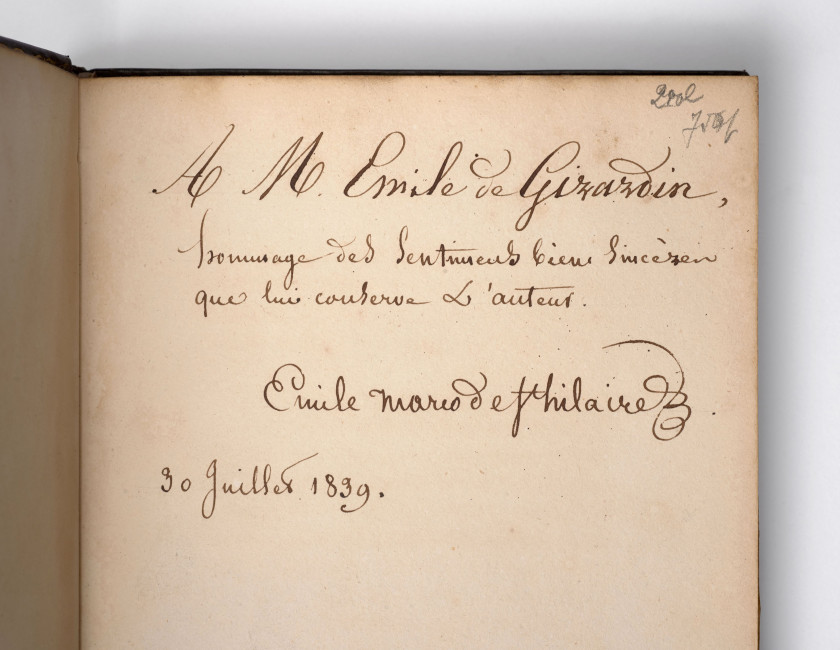 A M. Emile de Girardin,
hommage des sentimens bien sincères
que lui conserve L'auteur.
Emile Marco de St hilaire
30 Juillet 1839.